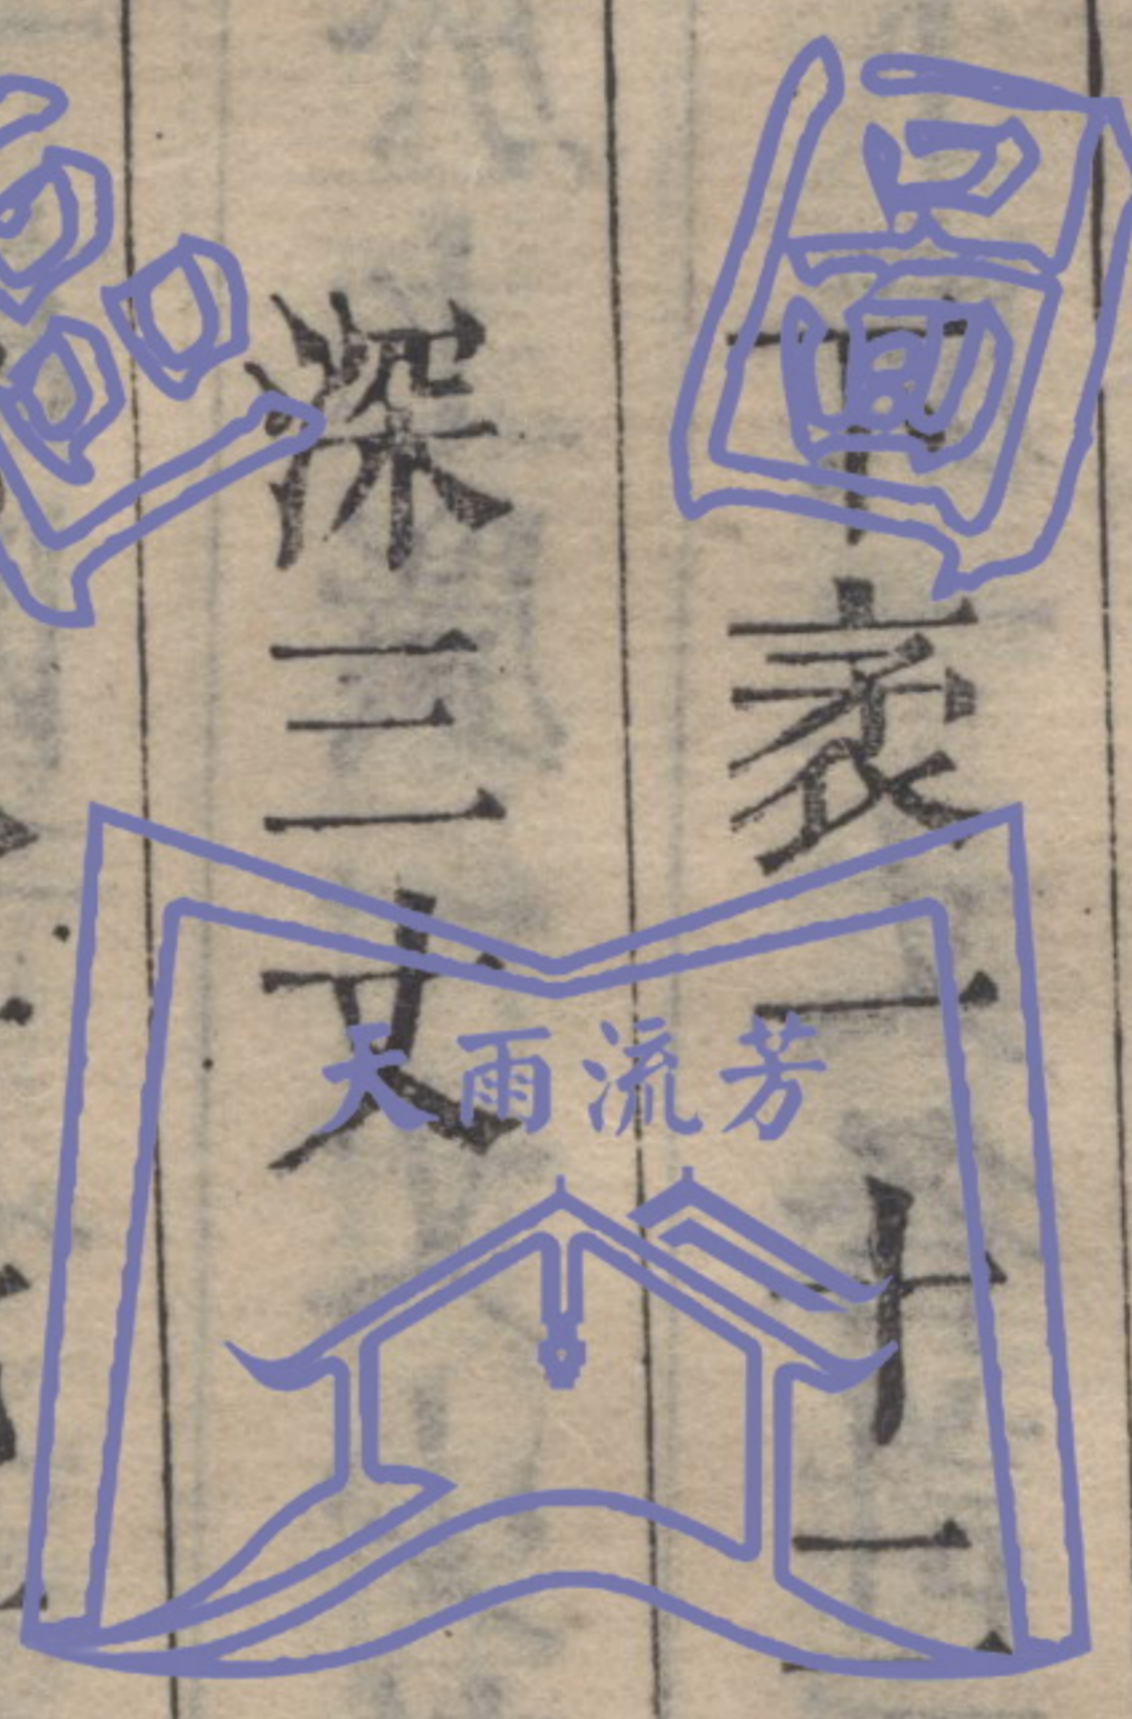 下袤一十二
深三丈
圖
天雨流芳